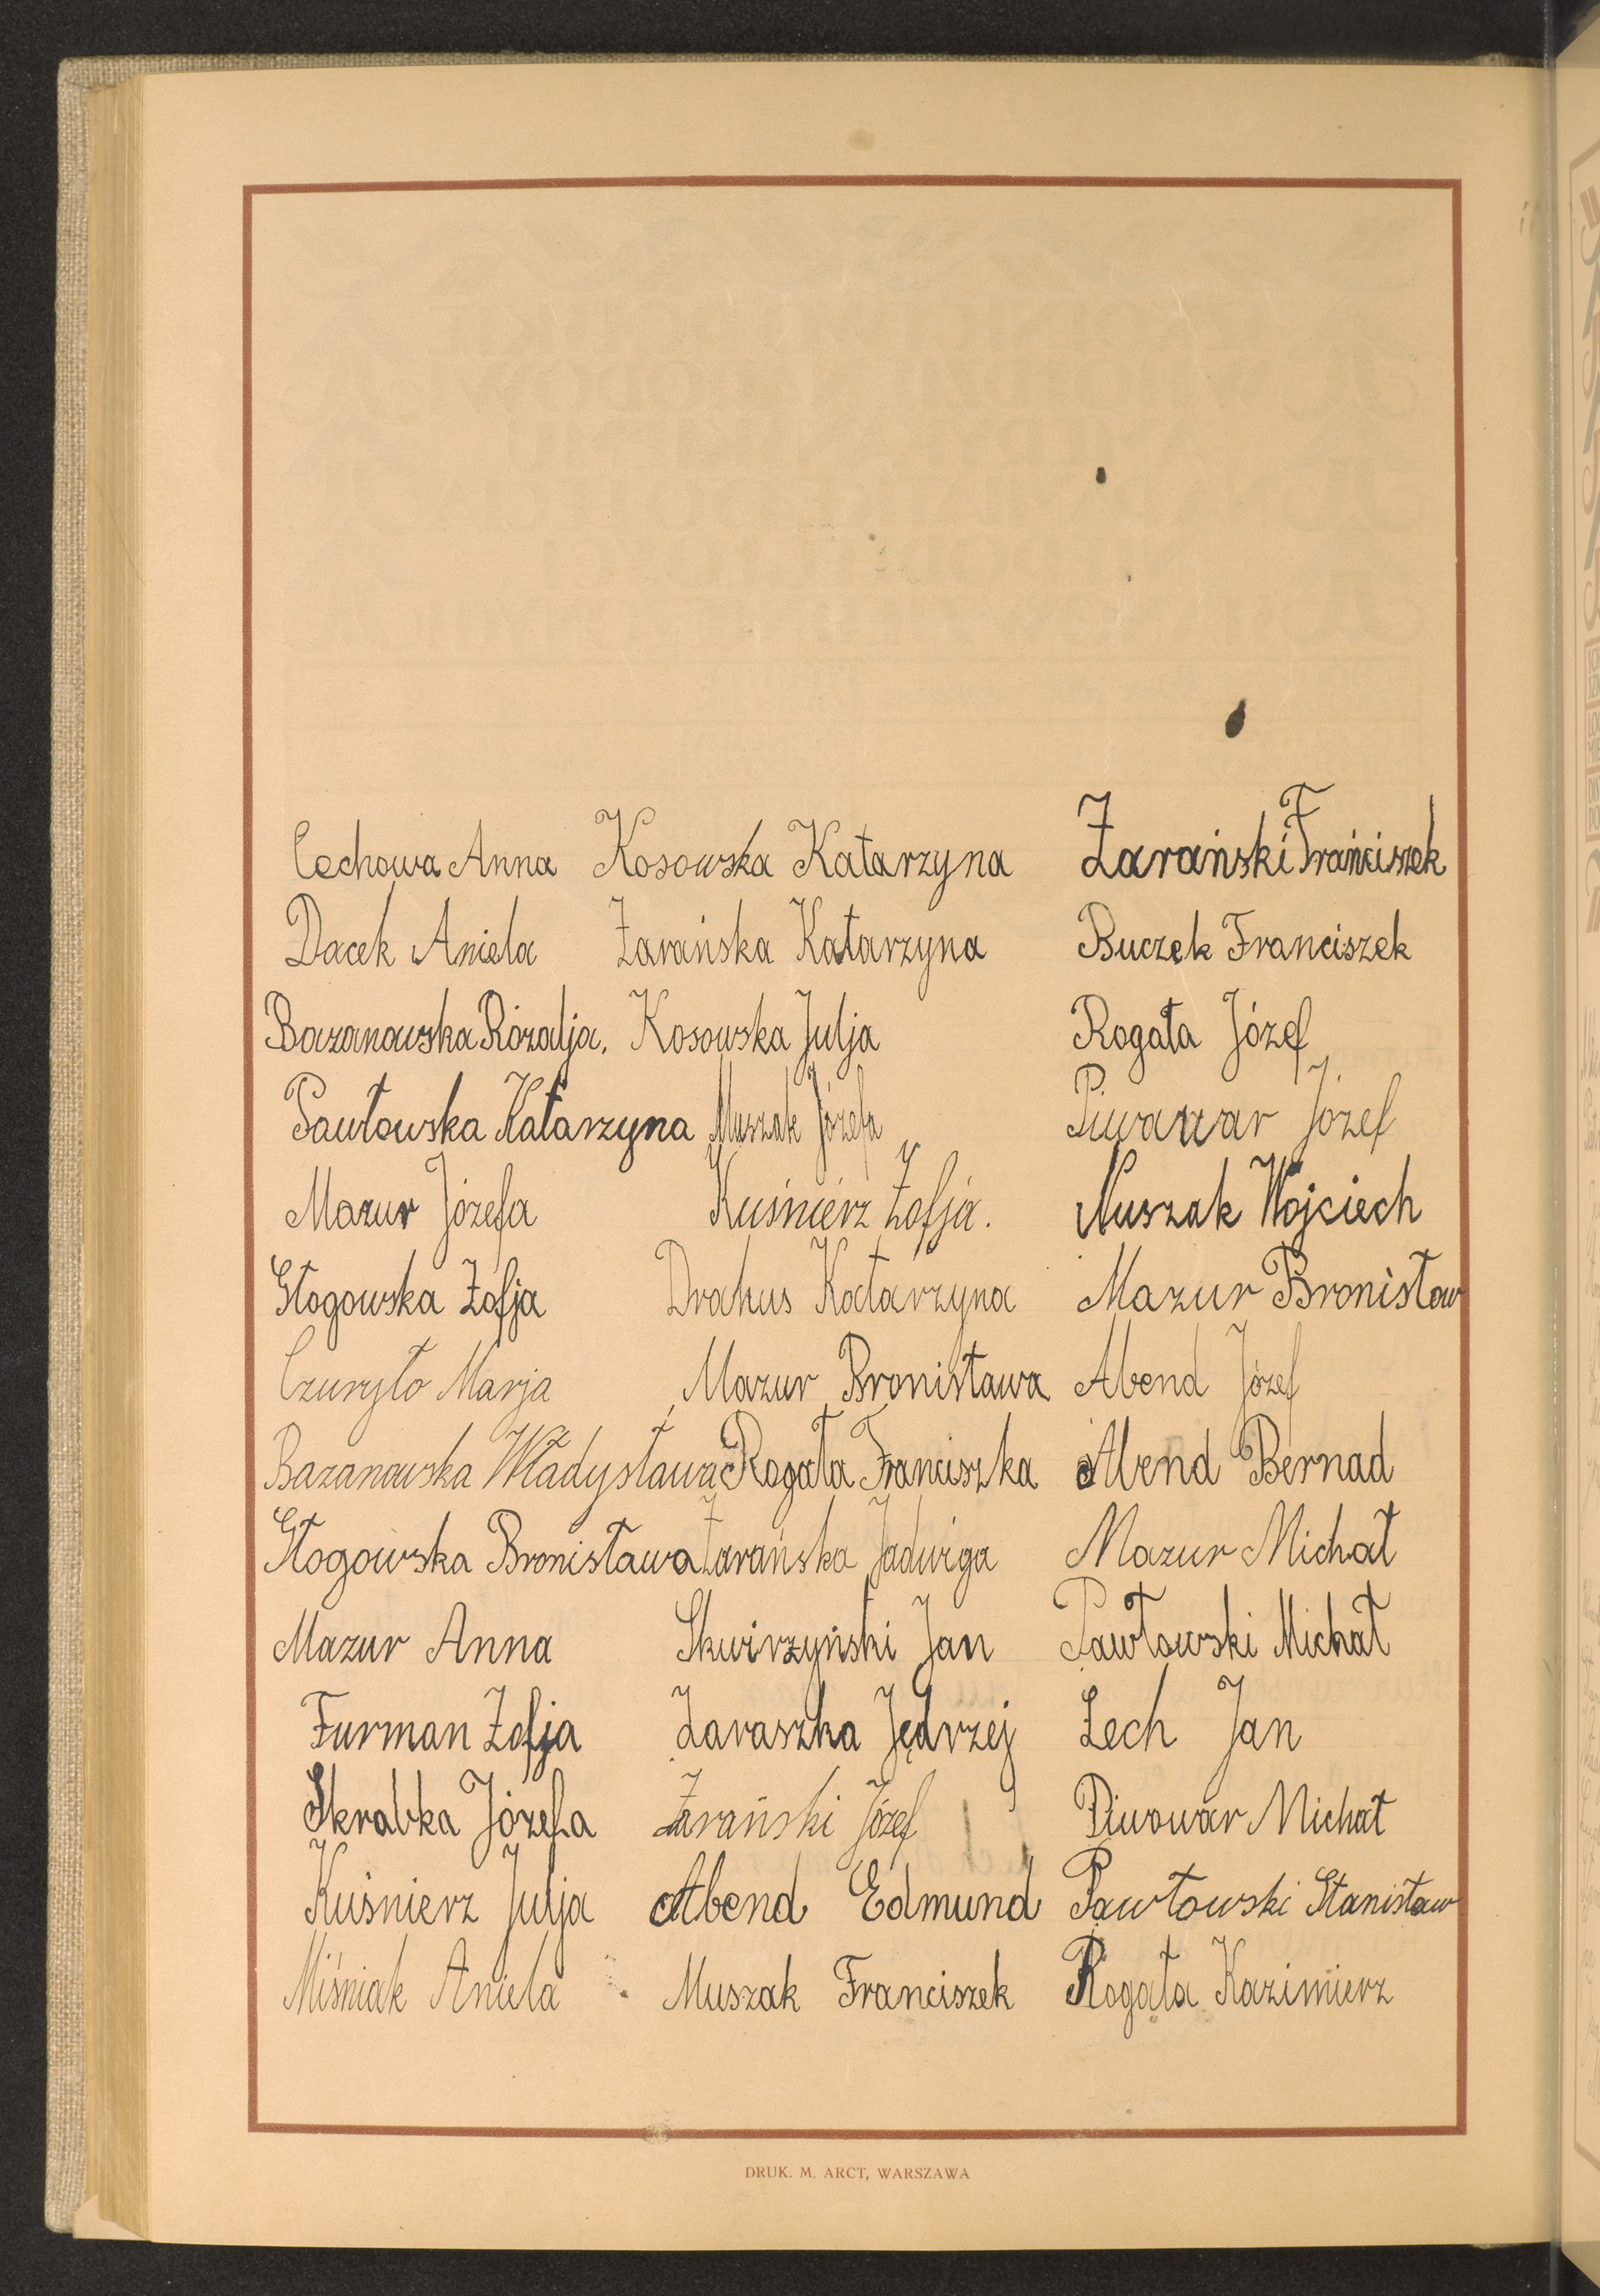 Cechowa Anna Kosowska Katarzyna Żarański Franciszek
Dacek Aniela Żarańska Katarzyna Buczek Franciszek
Bazanowska Rózalja. Kosowska Julja Rogała Józef
Pawłowska Katarzyna Muszak Józefa Piwowar Józef
Mazur Józefa Kuśnierz Zofja. Muszak Wojciech
Głogowska Zofja Drahus Katarzyna Mazur Bronisław
Czuryło Marja Mazur Bronisława Abend Józef
Bazanowska Władysława Rogała Franciszka Abend Bernad
Głogowska Bronisława Żarańska Jadwiga Mazur Michał
Mazur Anna Skwirzyński Jan Pawłowski Michał
Furman Zofja Zaraszka Jędrzej Zech Jan
Skrabka Józefa Żarański Józef Piwowar Michał
Kuśnierz Julja Abend Edmund Pawłowski Stanisław
Miśniak Aniela Muszak Franciszek Rogała Kazimierz
DRUK. M. ARCT, WARSZAWA